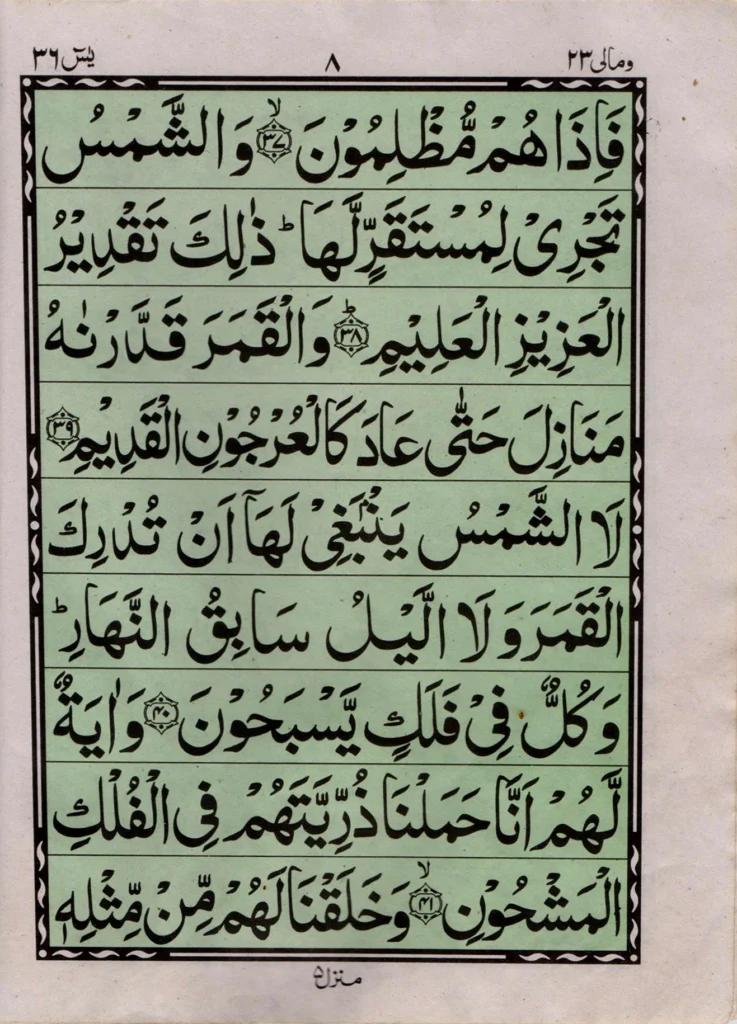 یٰسٓ ۳۶ ۸ ومالی ۲۳
فَاِذَا هُمْ مُّظْلِمُوْنَ ۙ﴿۳۷﴾ وَالشَّمْسُ
تَجْرِیْ لِمُسْتَقَرٍّ لَّهَا ؕ ذٰلِكَ تَقْدِیْرُ
الْعَزِیْزِ الْعَلِیْمِ ؕ﴿۳۸﴾ وَالْقَمَرَ قَدَّرْنٰهُ
مَنَازِلَ حَتّٰی عَادَ كَالْعُرْجُوْنِ الْقَدِیْمِ ﴿۳۹﴾
لَا الشَّمْسُ یَنْۢبَغِیْ لَهَاۤ اَنْ تُدْرِكَ
الْقَمَرَ وَلَا الَّیْلُ سَابِقُ النَّهَارِ ؕ
وَكُلٌّ فِیْ فَلَكٍ یَّسْبَحُوْنَ ﴿۴۰﴾ وَاٰیَةٌ
لَّهُمْ اَنَّا حَمَلْنَا ذُرِّیَّتَهُمْ فِی الْفُلْكِ
الْمَشْحُوْنِ ۙ﴿۴۱﴾ وَخَلَقْنَا لَهُمْ مِّنْ مِّثْلِهٖ
منزل ۵